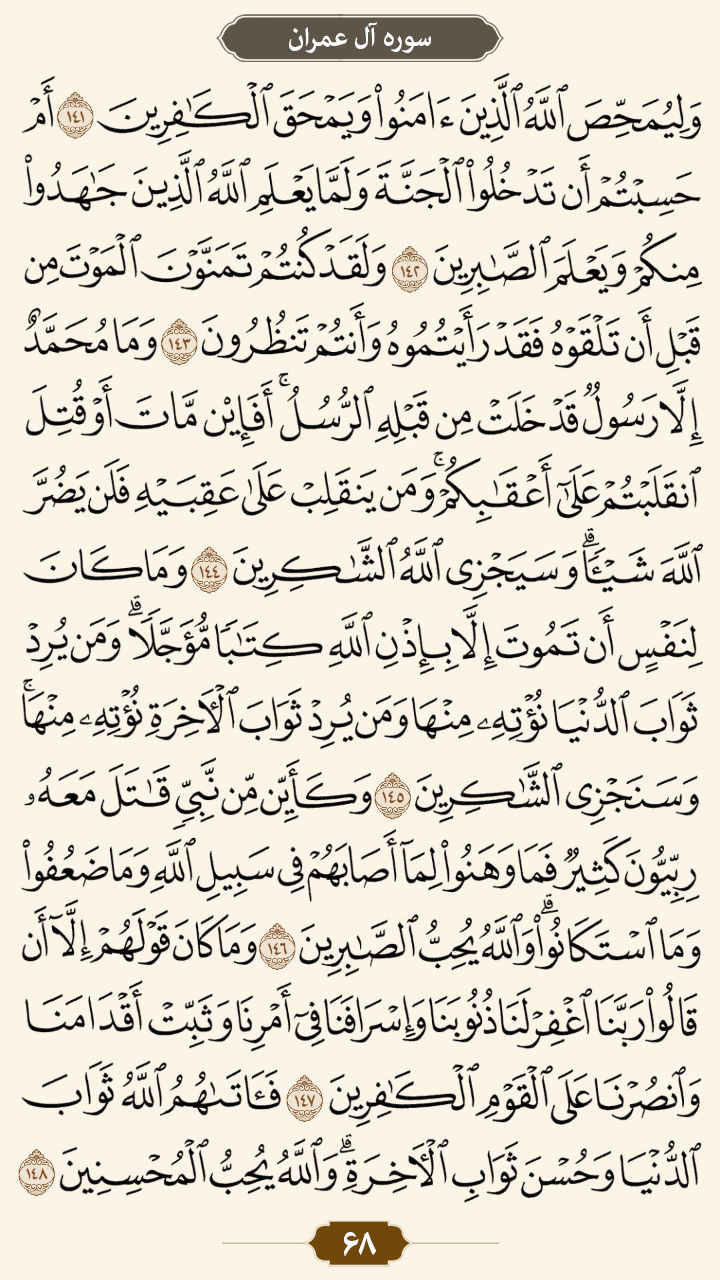 سوره آل عمران
وَلِيُمَحِّصَ ٱللَّهُ ٱلَّذِينَ ءَامَنُوا۟ وَيَمْحَقَ ٱلْكَـٰفِرِينَ ١٤١ أَمْ
حَسِبْتُمْ أَن تَدْخُلُوا۟ ٱلْجَنَّةَ وَلَمَّا يَعْلَمِ ٱللَّهُ ٱلَّذِينَ جَـٰهَدُوا۟
مِنكُمْ وَيَعْلَمَ ٱلصَّـٰبِرِينَ ١٤٢ وَلَقَدْ كُنتُمْ تَمَنَّوْنَ ٱلْمَوْتَ مِن
قَبْلِ أَن تَلْقَوْهُ فَقَدْ رَأَيْتُمُوهُ وَأَنتُمْ تَنظُرُونَ ١٤٣ وَمَا مُحَمَّدٌ
إِلَّا رَسُولٌ قَدْ خَلَتْ مِن قَبْلِهِ ٱلرُّسُلُ ۚ أَفَإِي۟ن مَّاتَ أَوْ قُتِلَ
ٱنقَلَبْتُمْ عَلَىٰٓ أَعْقَـٰبِكُمْ ۚ وَمَن يَنقَلِبْ عَلَىٰ عَقِبَيْهِ فَلَن يَضُرَّ
ٱللَّهَ شَيْـًٔا ۗ وَسَيَجْزِى ٱللَّهُ ٱلشَّـٰكِرِينَ ١٤٤ وَمَا كَانَ
لِنَفْسٍ أَن تَمُوتَ إِلَّا بِإِذْنِ ٱللَّهِ كِتَـٰبًا مُّؤَجَّلًا ۗ وَمَن يُرِدْ
ثَوَابَ ٱلدُّنْيَا نُؤْتِهِۦ مِنْهَا وَمَن يُرِدْ ثَوَابَ ٱلْـَٔاخِرَةِ نُؤْتِهِۦ مِنْهَا ۚ
وَسَنَجْزِى ٱلشَّـٰكِرِينَ ١٤٥ وَكَأَيِّن مِّن نَّبِىٍّ قَـٰتَلَ مَعَهُۥ
رِبِّيُّونَ كَثِيرٌ فَمَا وَهَنُوا۟ لِمَآ أَصَابَهُمْ فِى سَبِيلِ ٱللَّهِ وَمَا ضَعُفُوا۟
وَمَا ٱسْتَكَانُوا۟ ۗ وَٱللَّهُ يُحِبُّ ٱلصَّـٰبِرِينَ ١٤٦ وَمَا كَانَ قَوْلَهُمْ إِلَّآ أَن
قَالُوا۟ رَبَّنَا ٱغْفِرْ لَنَا ذُنُوبَنَا وَإِسْرَافَنَا فِىٓ أَمْرِنَا وَثَبِّتْ أَقْدَامَنَا
وَٱنصُرْنَا عَلَى ٱلْقَوْمِ ٱلْكَـٰفِرِينَ ١٤٧ فَـَٔاتَىٰهُمُ ٱللَّهُ ثَوَابَ
ٱلدُّنْيَا وَحُسْنَ ثَوَابِ ٱلْـَٔاخِرَةِ ۗ وَٱللَّهُ يُحِبُّ ٱلْمُحْسِنِينَ ١٤٨
۶۸